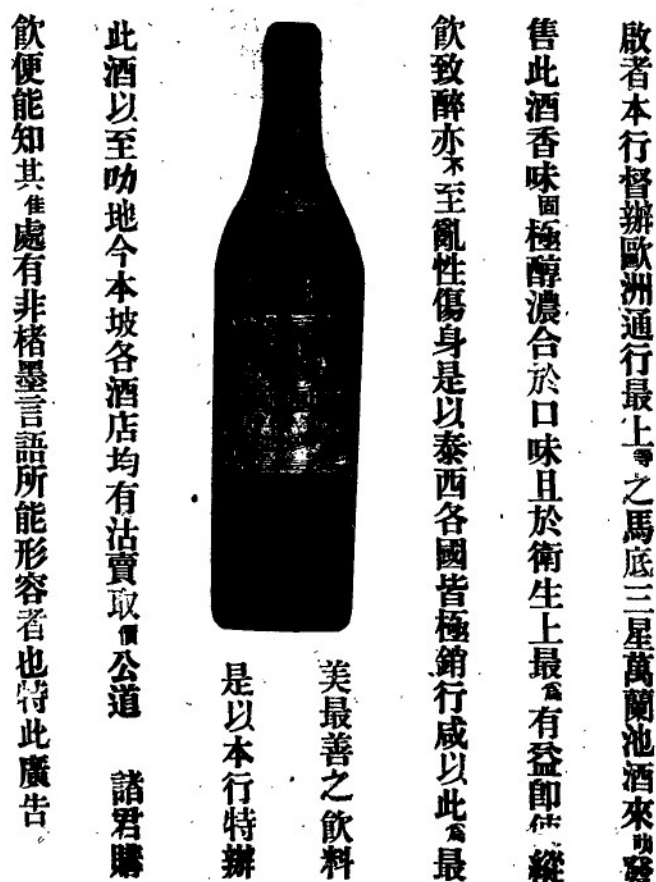 啟者本行督辦歐洲通行最上等之馬底三星萬蘭池酒來叻發
售此酒香味固極醇濃合於口味且於衛生上最為有益即使縱
飲致醉亦不至亂性傷身是以泰西各國皆極銷行咸以此為最
美最善之飲料
是以本行特辦
此酒以至叻地今本坡各酒店均有沽賣取價公道 諸君購
飲便能知其隹處有非楮墨言語所能形容者也特此廣告